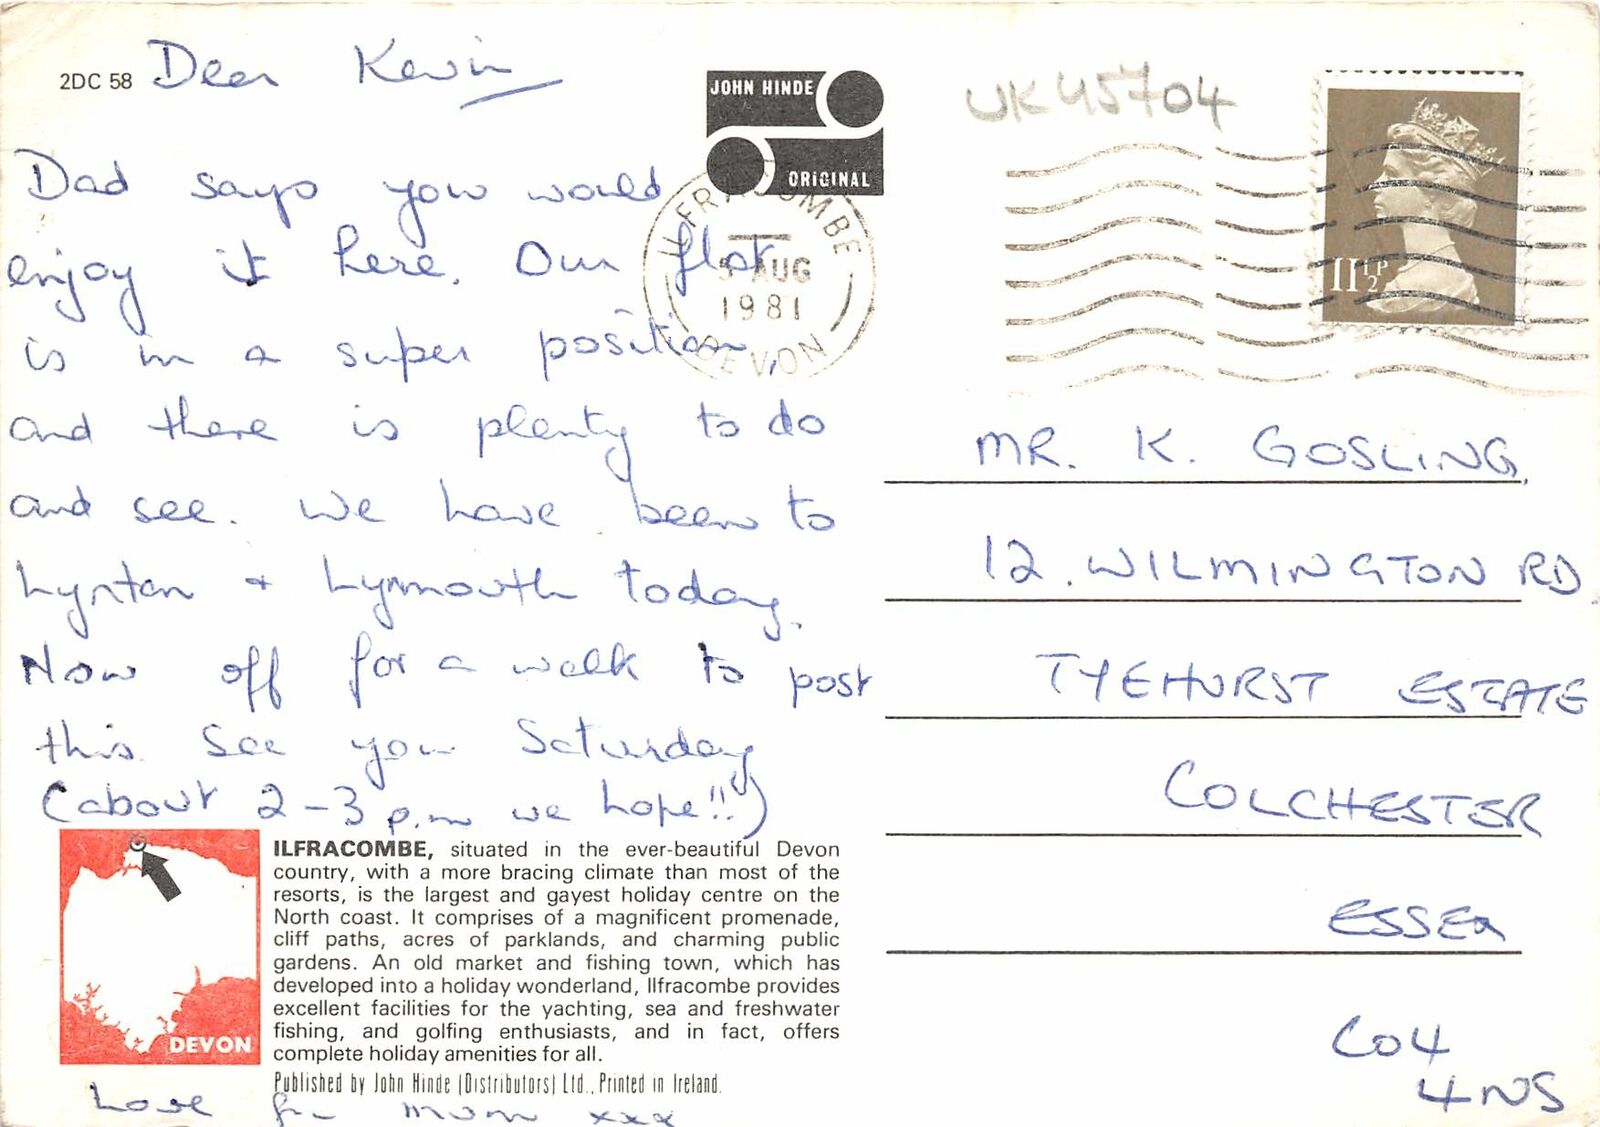 2DC 58
Dear Kevin
Dad says you would
enjoy it here. Our flat
is in a super position,
and there is plenty to do
and see. We have been to
Lynton + Lynmouth today.
Now off for a walk to post
this. See you Saturday
(about 2-3 p.m we hope!!)
JOHN HINDE
ORIGINAL
ILFRACOMBE
AUG
1981
DEVON
UK45704
11½P
MR. K. GOSLING,
12. WILMINGTON RD.
TYEHURST ESTATE
COLCHESTER
ESSEX
CO4
4NS
DEVON
ILFRACOMBE, situated in the ever-beautiful Devon
country, with a more bracing climate than most of the
resorts, is the largest and gayest holiday centre on the
North coast. It comprises of a magnificent promenade,
cliff paths, acres of parklands, and charming public
gardens. An old market and fishing town, which has
developed into a holiday wonderland, Ilfracombe provides
excellent facilities for the yachting, sea and freshwater
fishing, and golfing enthusiasts, and in fact, offers
complete holiday amenities for all.
Published by John Hinde (Distributors) Ltd., Printed in Ireland.
Love fr Mum xxx